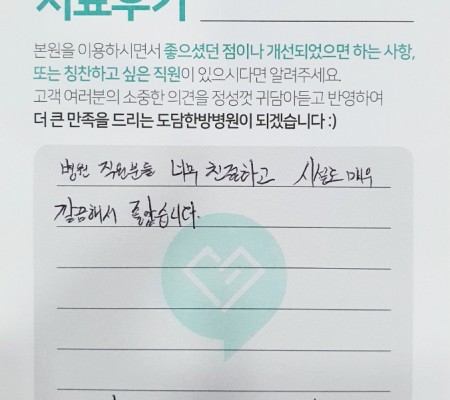 치료후기
본원을 이용하시면서 좋으셨던 점이나 개선되었으면 하는 사항,
또는 칭찬하고 싶은 직원이 있으시다면 알려주세요.
고객 여러분의 소중한 의견을 정성껏 귀담아듣고 반영하여
더 큰 만족을 드리는 도담한방병원이 되겠습니다 :)
병원 직원분들 너무 친절하고 시설도 매우
깔끔해서 좋았습니다.